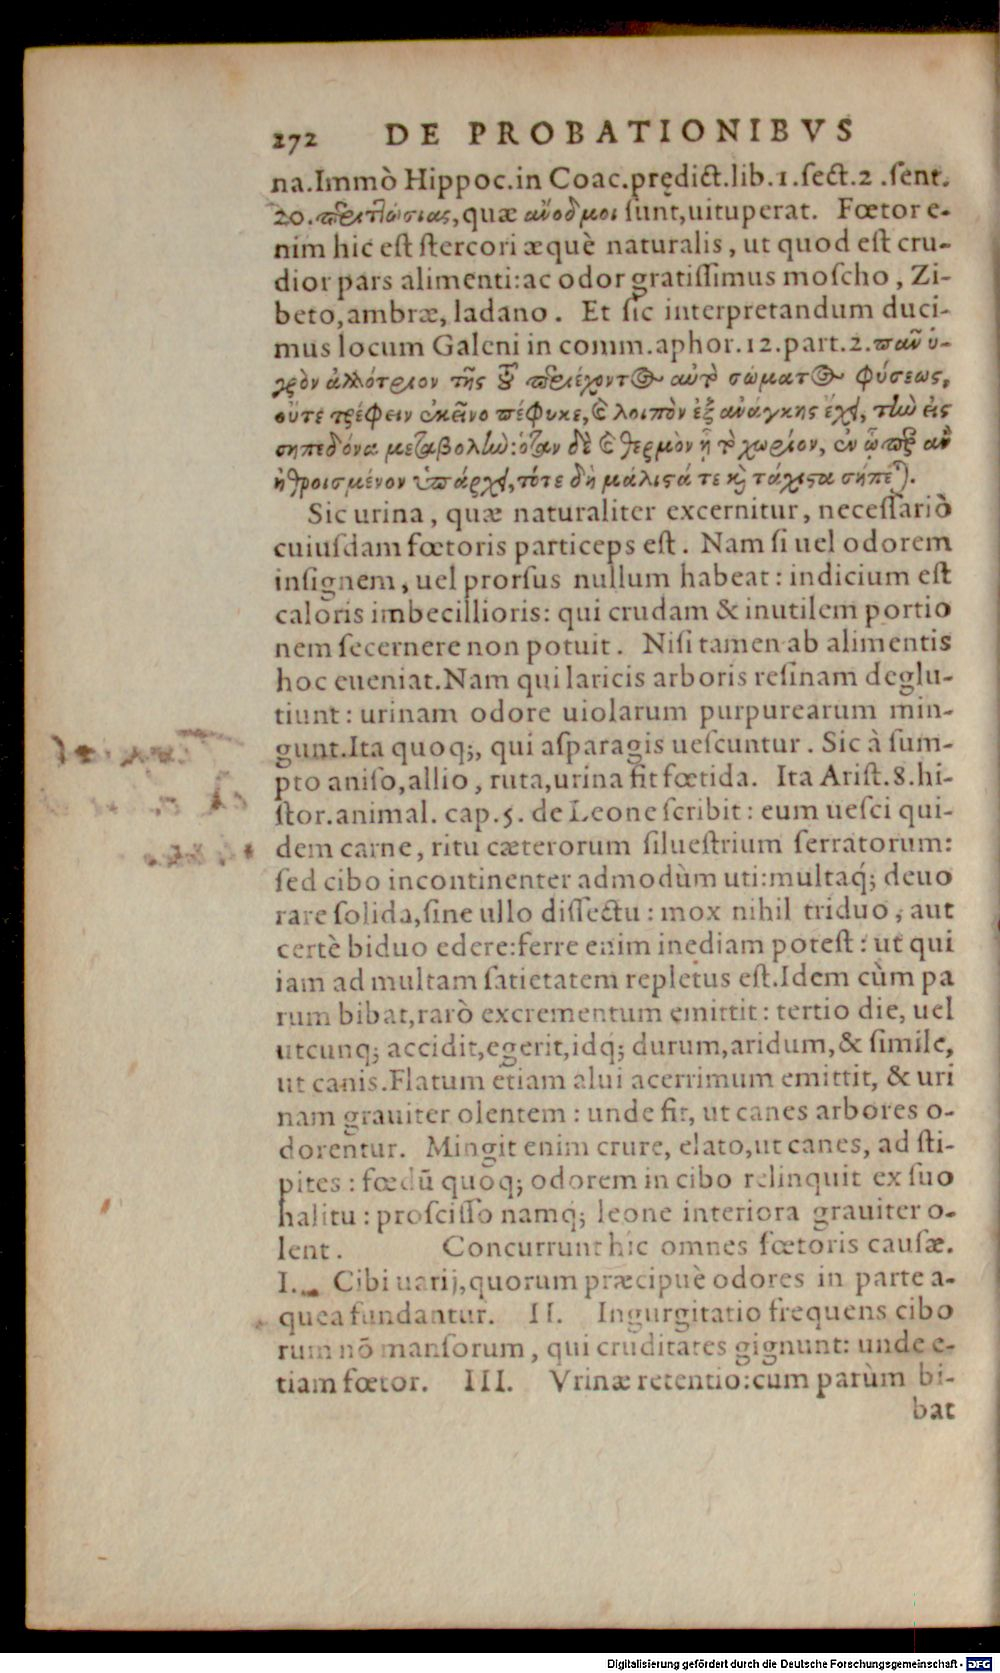 272 DE PROBATIONIBVS
na. Immò Hippoc. in Coac. prędict. lib. 1. ſect. 2. ſent.
20. quæ ἄνοδμοι ſunt, uituperat. Fœtor e-
nim hic eſt ſtercori æquè naturalis, ut quod eſt cru-
dior pars alimenti: ac odor gratiſſimus moſcho, Zi-
beto, ambræ, ladano. Et ſic interpretandum duci-
mus locum Galeni in comm. aphor. 12. part. 2. πᾶν ὑ-
γρὸν ἀλλότριον τῆς τοῦ περιέχοντος αὐτὸ σώματος φύσεως,
οὔτε τρέφειν ἐκεῖνο πέφυκε, καὶ λοιπὸν ἐξ ἀνάγκης ἔχει, τὴν εἰς
σηπεδόνα μεταβολὴν: ὅταν δὲ καὶ θερμὸν ᾖ τὸ χωρίον, ἐν ᾧπερ ἂν
ἠθροισμένον ὑπάρχει, τότε δὴ μάλιστά τε καὶ τάχιστα σήπεται.
Sic urina, quæ naturaliter excernitur, neceſſariò
cuiuſdam fœtoris particeps eſt. Nam ſi uel odorem
inſignem, uel prorſus nullum habeat: indicium eſt
caloris imbecillioris: qui crudam & inutilem portio
nem ſecernere non potuit. Niſi tamen ab alimentis
hoc eueniat. Nam qui laricis arboris reſinam deglu-
tiunt: urinam odore uiolarum purpurearum min-
gunt. Ita quoq;, qui aſparagis ueſcuntur. Sic à ſum-
pto aniſo, allio, ruta, urina fit fœtida. Ita Ariſt. 8. hi-
ſtor. animal. cap. 5. de Leone ſcribit: eum ueſci qui-
dem carne, ritu cæterorum ſilueſtrium ſerratorum:
ſed cibo incontinenter admodùm uti: multaq́; deuo
rare ſolida, ſine ullo diſſectu: mox nihil triduo, aut
certè biduo edere: ferre enim inediam poteſt: ut qui
iam ad multam ſatietatem repletus eſt. Idem cùm pa
rum bibat, rarò excrementum emittit: tertio die, uel
utcunq; accidit, egerit, idq; durum, aridum, & ſimile,
ut canis. Flatum etiam alui acerrimum emittit, & uri
nam grauiter olentem: unde fit, ut canes arbores o-
dorentur. Mingit enim crure, elato, ut canes, ad ſti-
pites: fœdũ quoq; odorem in cibo relinquit ex ſuo
halitu: proſciſſo namq́; leone interiora grauiter o-
lent. Concurrunt hîc omnes fœtoris cauſæ.
I. Cibi uarij, quorum præcipuè odores in parte a-
quea fundantur. II. Ingurgitatio frequens cibo
rum nõ manſorum, qui cruditates gignunt: unde e-
tiam fœtor. III. Vrinæ retentio: cum parùm bi-
bat
Digitalisierung gefördert durch die Deutsche Forschungsgemeinschaft - DFG